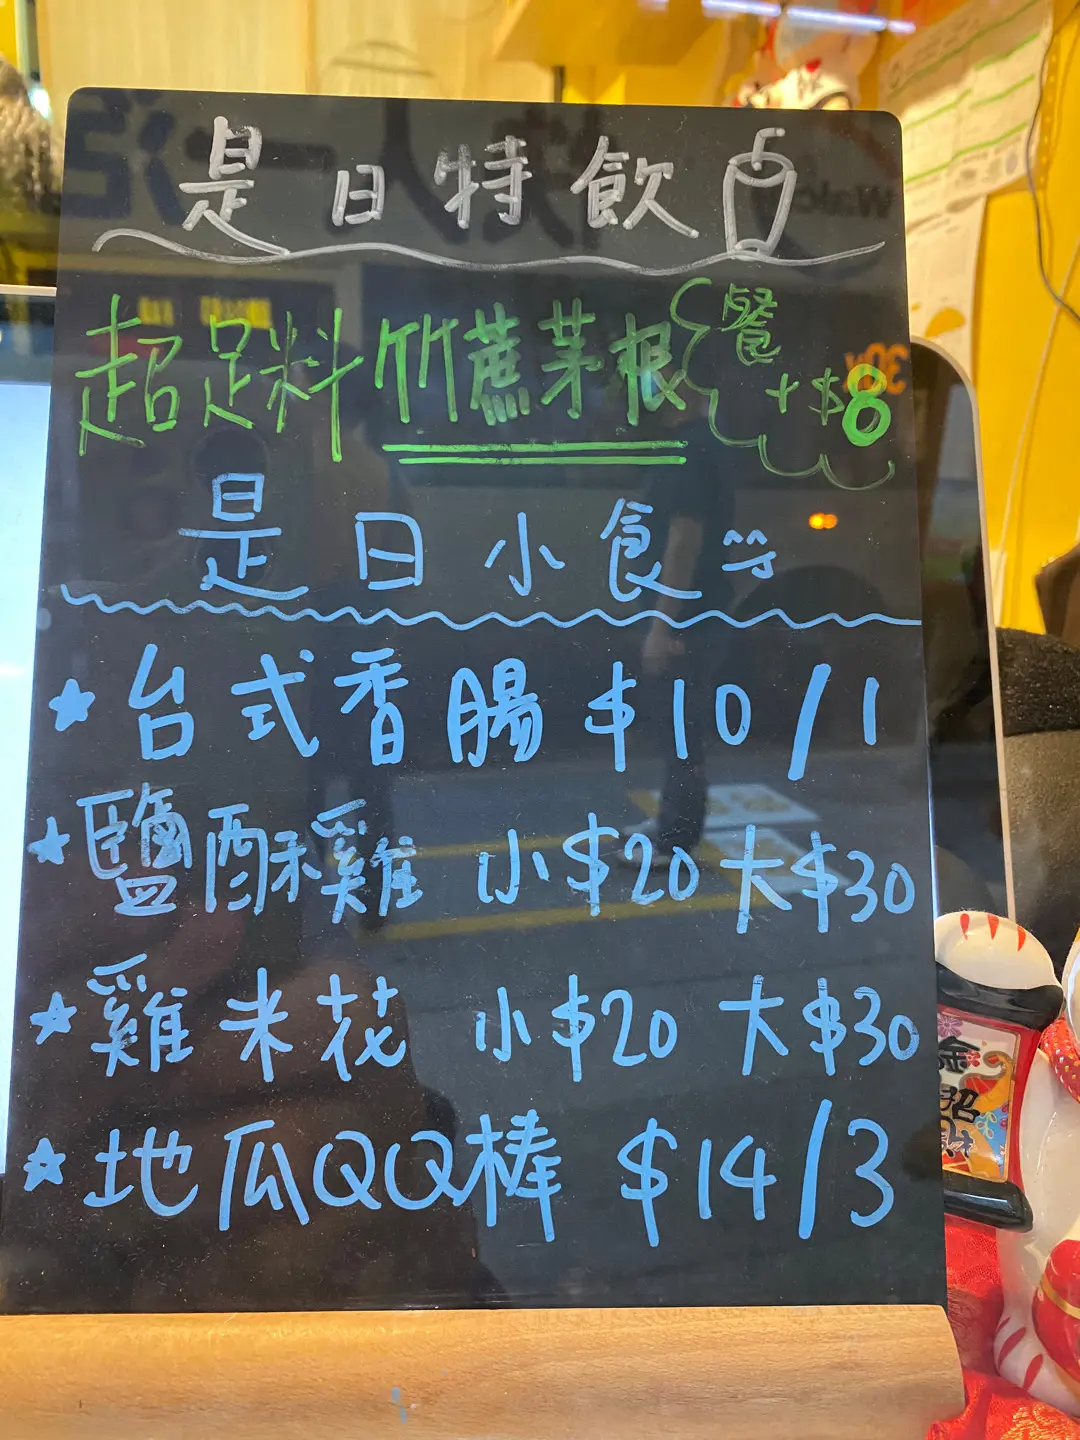 是日特飲
超足料竹蔗茅根 餐+$8
是日小食
台式香腸 $10/1
鹽酥雞 小$20 大$30
雞米花 小$20 大$30
地瓜QQ棒 $14/3
金招財